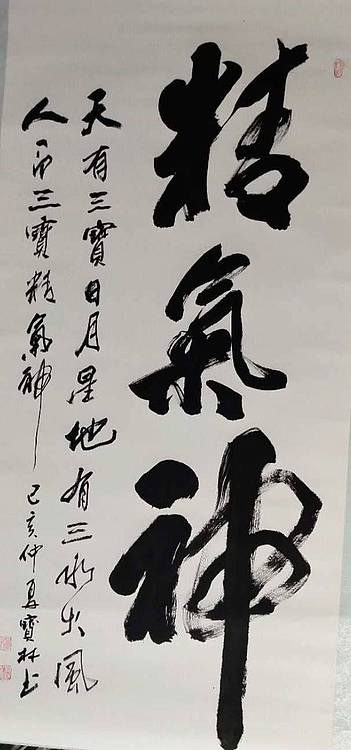 精氣神
天有三寶日月星地有三水火風
人有三寶精氣神
己亥仲夏寶林书